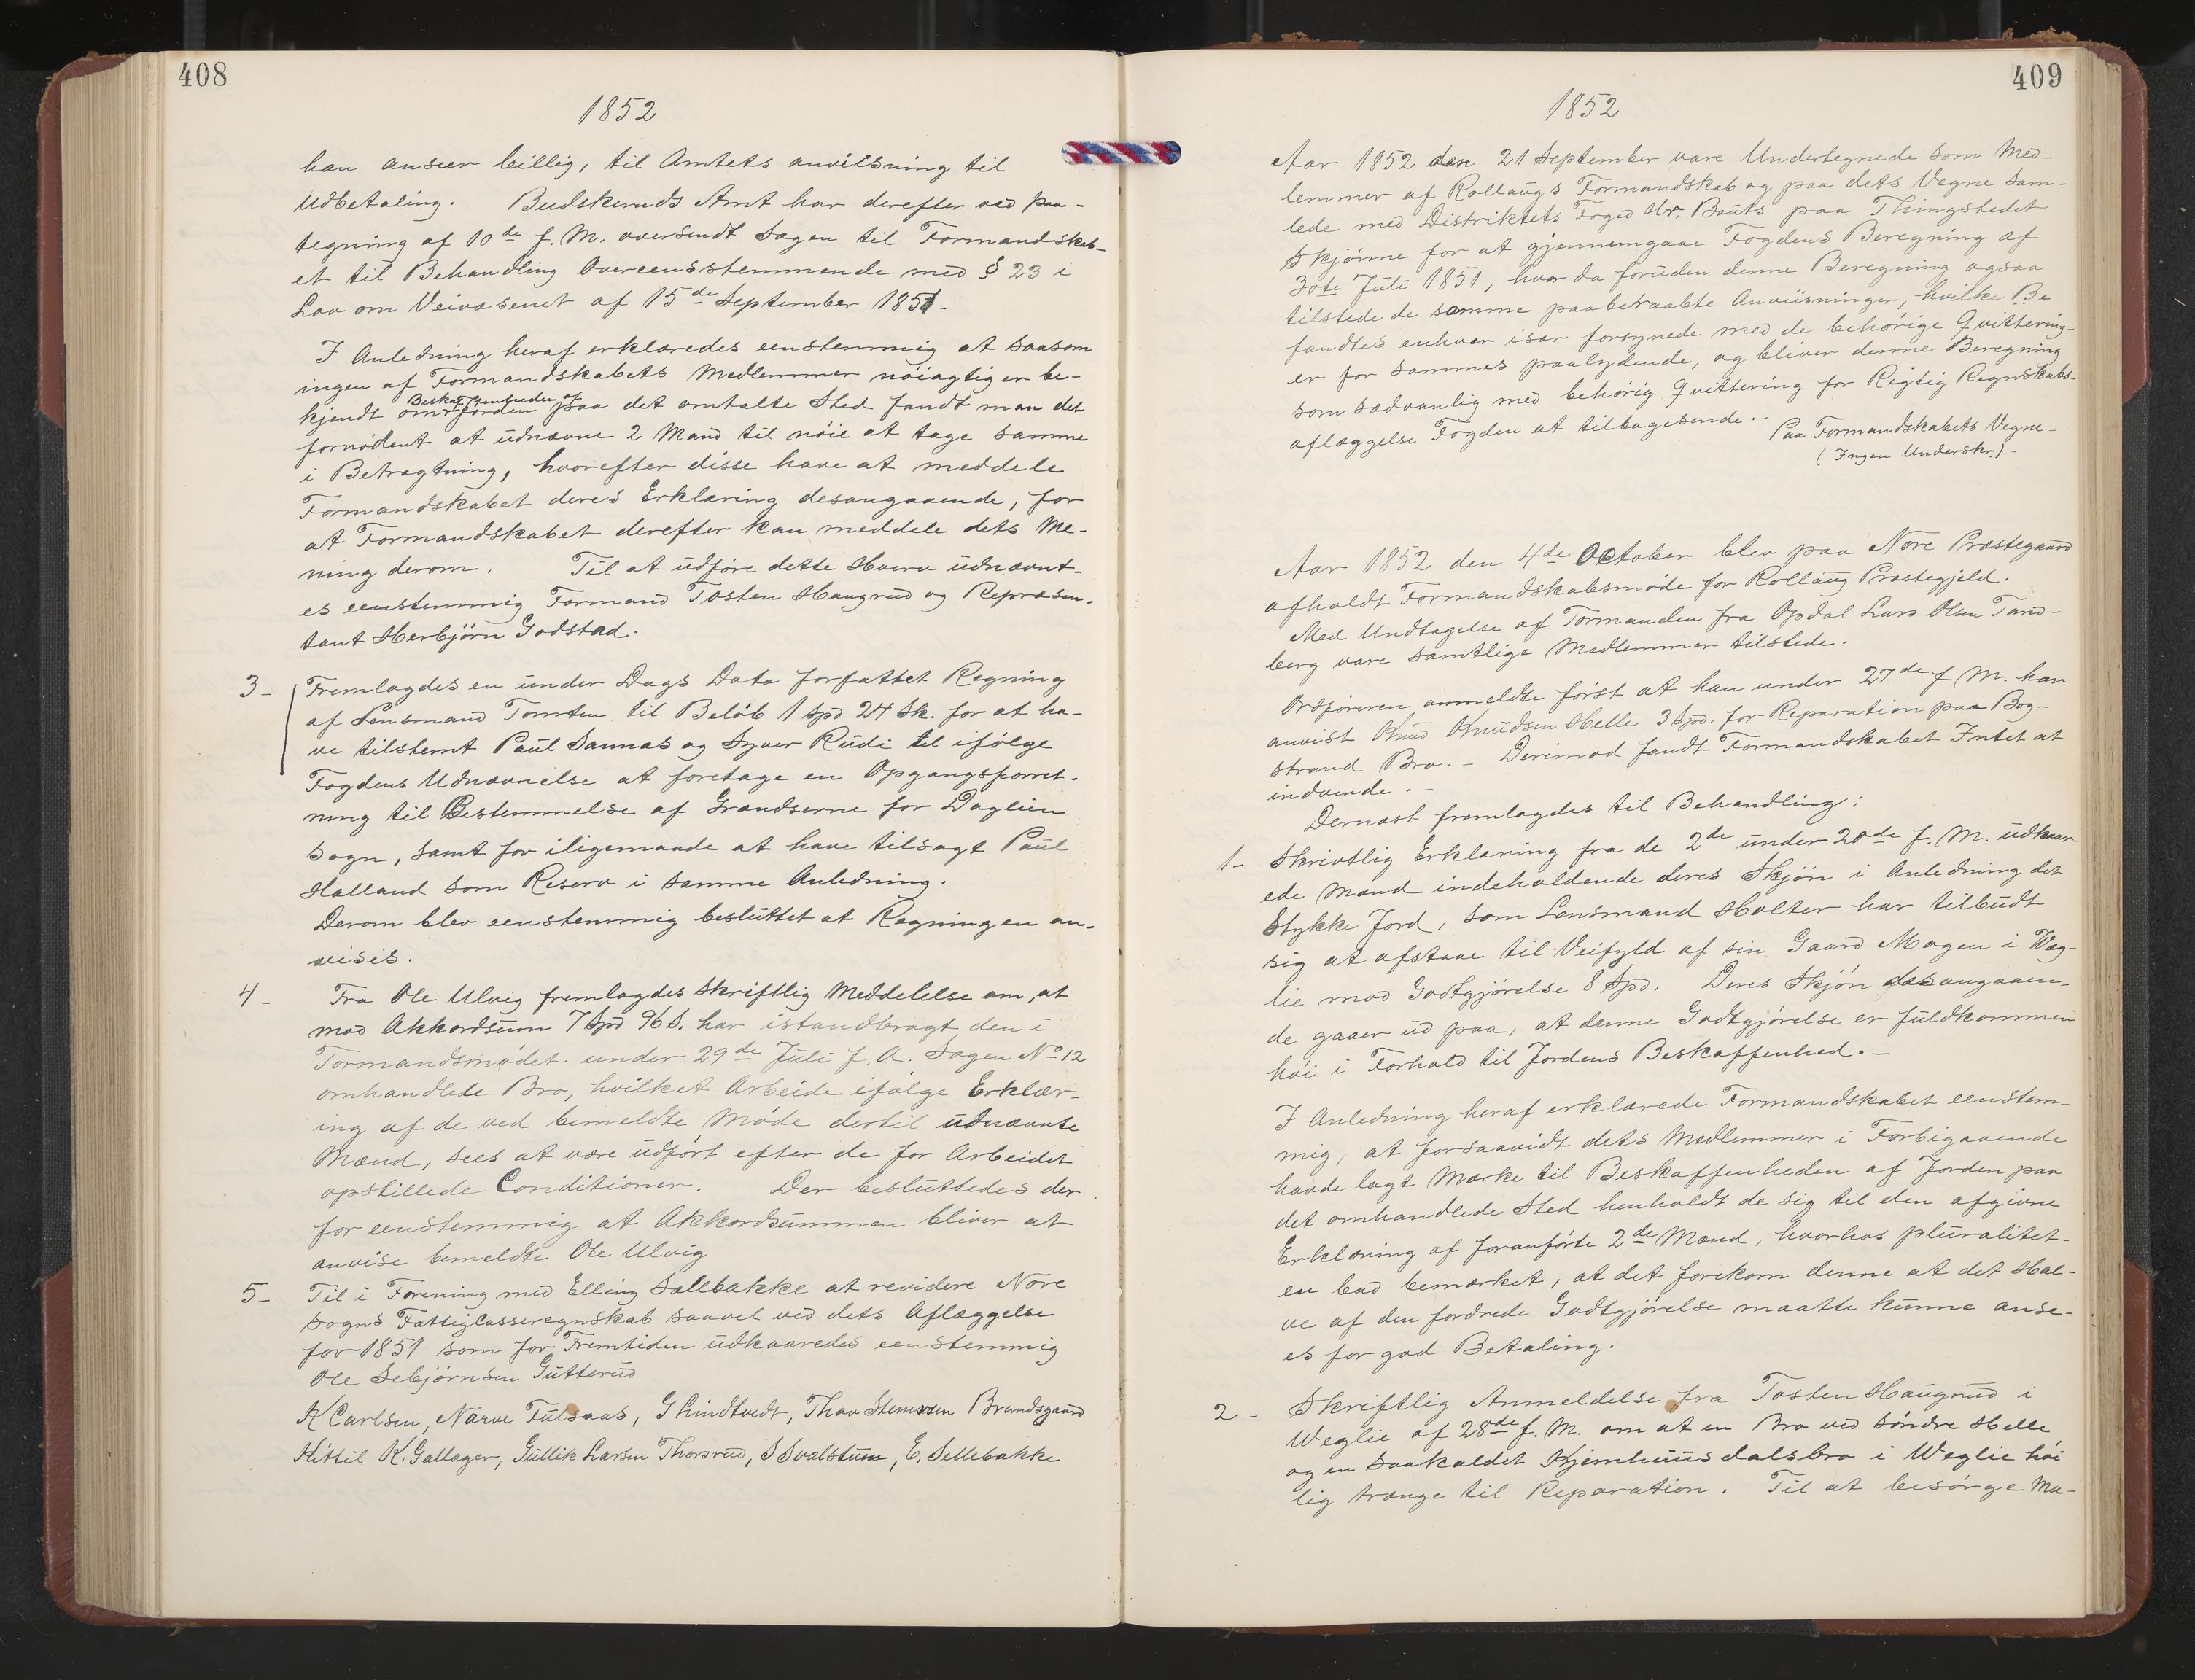 408
1852
han anseer billig, til Amtets anviisning til
Udbetaling. Budskeruds Amt har derefter ved paa-
tegning af 10de f. M. oversendt Sagen til Formandskab-
et til Behandling Overeensstemmende med § 23 i
Lov om Veivæsenet af 15de September 1851.
I Anledning heraf erklæredes eenstemmig at saasom
ingen af Formandskabets Medlemmer nöiagtig er be-
Beskaffenheden af
kjendt om Jorden paa det omtalte Sted fandt man det
fornödent at udnævne 2 Mand til nöie at tage samme
i Betragtning, hvorefter disse have at meddele
Formandskabet deres Erklæring desangaaende, for
at Formandskabet derefter kan meddele dets Me-
ning derom. Til at udföre dette Hverv udnævnt-
es eenstemmig Formand Tosten Haugrud og Repræsen-
tant Herbjörn Godstad.
3- Fremlagdes en under Dags Dato forfattet Regning
af Lensmand Tomten til Belöb 1 Spd 24 Sk. for at ha-
ve tilstemt Paul Sannæs og Syver Rudi til ifölge
Fogdens Udnævnelse at foretage en Opgangsforret-
ning til Bestemmelse af Grændserne for Dagliin
Sogn, samt for iligemaade at have tilsagt Paul
Halland som Reserv i samme Anledning.
Derom blev eenstemmig besluttet at Regningen an-
visis.
4- Fra Ole Ulvig fremlagdes Skriftlig Meddelelse om, at
mod Akkordsum 7 Spd 96 S. har istandbragt den i
Formandsmödet under 29de Juli f. A. Sagen No 12
omhandlede Bro, hvilket Arbeide ifölge Erklær-
ing af de ved bemeldte Möde dertil udnævnte
Mænd, sees at være udfört efter de for Arbeidet
opstillede Conditioner. Der besluttedes der
for eenstemmig at Akkordsummen bliver at
anvise bemeldte Ole Ulvig
5- Til i Forening med Elling Sællebakke at revidere Nore
Sogns Fattigcasseregnskab saavel ved dets Aflæggelse
for 1851 som for Fremtiden udkaaredes eenstemmig
Ole Sebjörnsen Gutterud
K Carlsen, Narve Fulsaas, G Lindtvedt, Thov Stenersen Brundsgaard
Kittil K. Gallager, Gullik Larsen Thorsrud, S Svalstuen, E. Sellebakke
409
1852
Aar 1852 den 21 September vare Undertegnede som Med-
lemmer af Rollaugs Formandskab og paa dets Vegne Sam-
lede med Distriktets Foged Hr. Bauts paa Thingstedet
Skjönne for at gjennemgaae Fogdens Beregning af
30te Juli 1851, hvor da foruden denne Beregning ogsaa
tilstede de samme paaberaabte Anviisninger, hvilke Be
fandtes enhver især forsynede med de behörige Qvittering-
er for sammes paalydende, og bliver denne Beregning
som sædvanlig med behörig Qvittering for Rigtig Regnskabs-
aflæggelse Fogden at tilbagesende.-
Paa Formandskabets Vegne-
(Ingen Underskr.)-
Aar 1852 den 4de October blev paa Nore Præstegaard
afholdt Formandskabsmöde for Rollaug Præstegjeld.
Med Undtagelse af Formanden fra Opdal Lars Olsen Tand-
berg vare samtlige Medlemmer tilstede.
Ordföreren anmeldte först at han under 27de f M. har
anvist Knud Knudsen Helle 3 Spd. for Reparation paa Bog-
strand Bro.- Derimod fandt Formandskabet Intet at
indvende.-
Dernæst fremlagdes til Behandling:
1- Skrivtlig Erklæring fra de 2de under 20de f. M. udkaar
ede Mænd indeholdende deres Skjön i Anledning det
Stykke Jord, som Lensmand Holter har tilbudt
sig at afstaae til Veifyld af sin Gaard Mogen i Weg-
lie mod Godtgjörelse 8 Spd. Deres Skjön desangaaen-
de gaaer ud paa, at denne Godtgjörelse er fuldkommen
höi i Forhold til Jordens Beskaffenhed.-
I Anledning heraf erklærede Formandskabet eenstem-
mig, at forsaavidt dets Medlemmer i Forbigaaende
havde lagt Mærke til Beskaffenheden af Jorden paa
det omhandlede Sted henholdt de sig til den afgivne
Erklæring af foranförte 2de Mænd, hvorhos pluralitet-
en bad bemærket, at det forekom denne at det Hal-
ve af den fordrede Godtgjörelse maatte kunne anse-
es for god Betaling.
2- Skriftlig Anmeldelse fra Tosten Haugrud i
Weglie af 28de f. M. om at en Bro ved Söndre Helle
og en saakaldet Kjemhuusdalsbro i Weglie höi
lig trænge til Reparation. Til at besörge Ma-